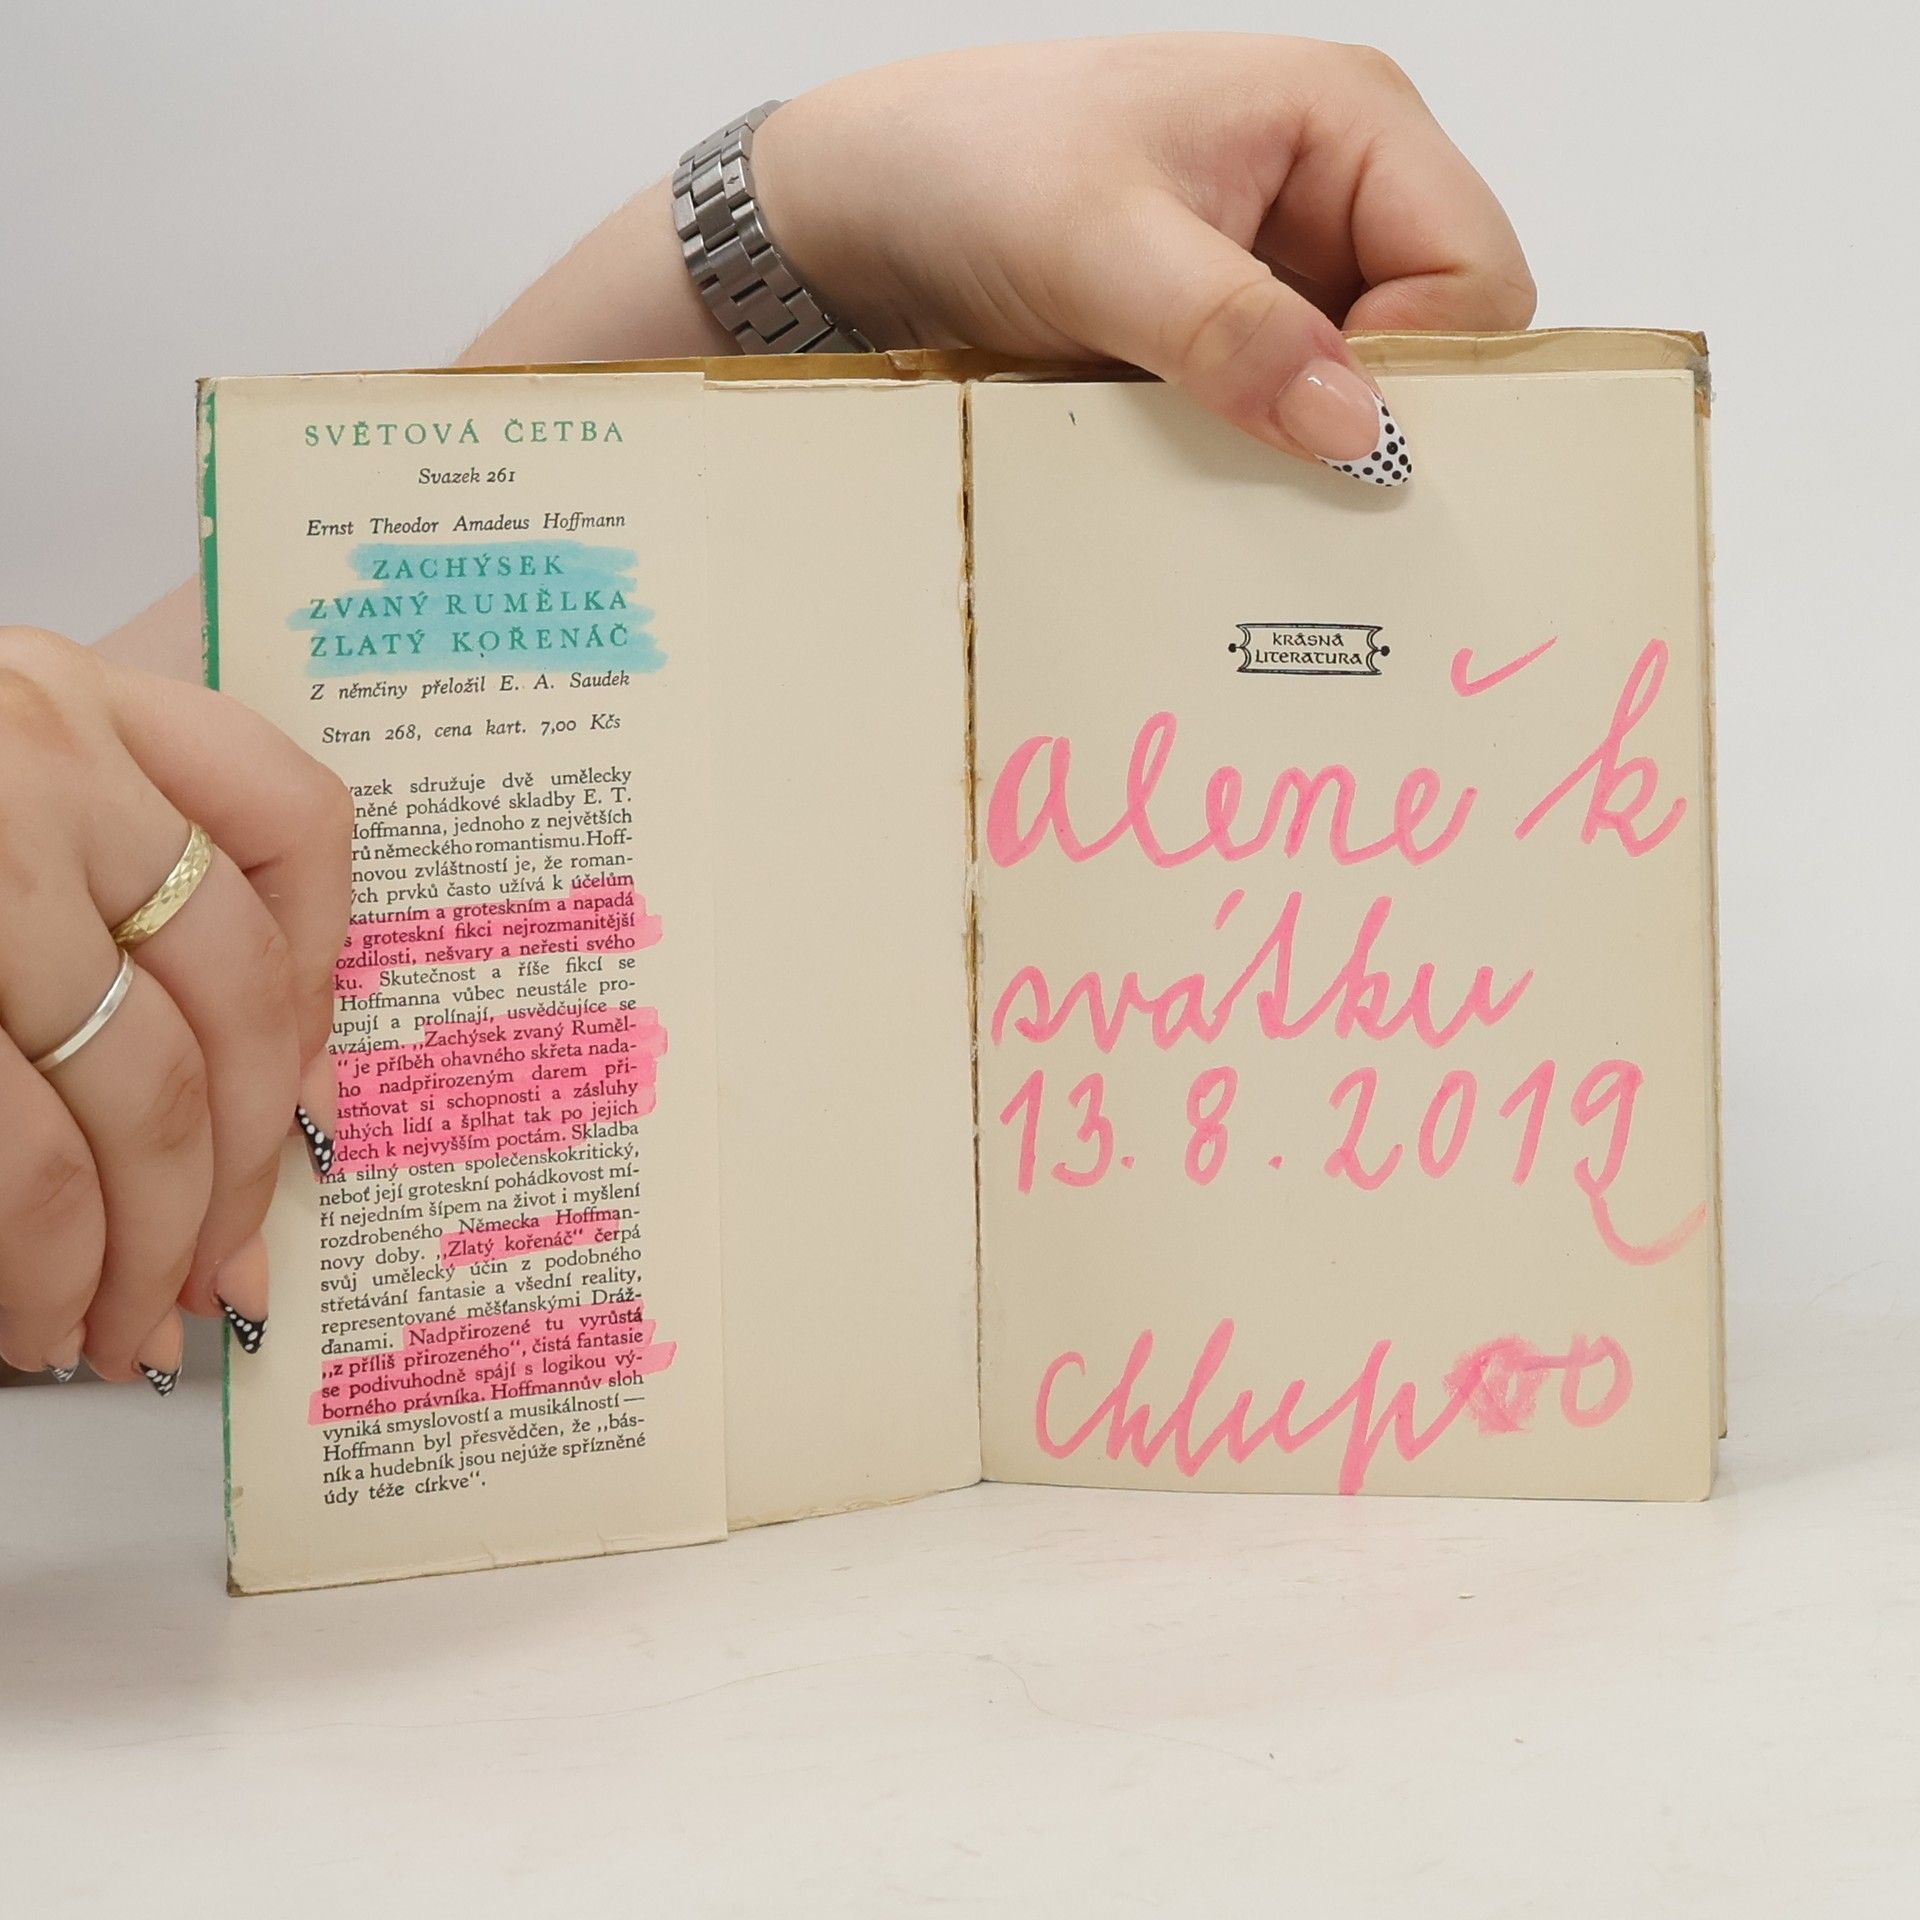 SVĚTOVÁ ČETBA
Svazek 261
Ernst Theodor Amadeus Hoffmann
ZACHÝSEK
ZVANÝ RUMĚLKA
ZLATÝ KOŘENÁČ
Z němčiny přeložil E. A. Saudek
Stran 268, cena kart. 7,00 Kčs
vazek sdružuje dvě umělecky
něné pohádkové skladby E. T.
Hoffmanna, jednoho z největších
rů německého romantismu. Hoff-
novou zvláštností je, že roman-
ých prvků často užívá k účelům
katurním a groteskním a napadá
s groteskní fikci nejrozmanitější
ozdilosti, nešvary a neřesti svého
ku. Skutečnost a říše fikcí se
Hoffmanna vůbec neustále pro-
upují a prolínají, usvědčujíce se
avzájem. „Zachýsek zvaný Ruměl-
“ je příběh ohavného skřeta nada-
ho nadpřirozeným darem při-
astňovat si schopnosti a zásluhy
ruhých lidí a šplhat tak po jejich
dech k nejvyšším poctám. Skladba
má silný osten společenskokritický,
neboť její groteskní pohádkovost mí-
ří nejedním šípem na život i myšlení
rozdrobeného Německa Hoffman-
novy doby. „Zlatý kořenáč“ čerpá
svůj umělecký účin z podobného
střetávání fantasie a všední reality,
representované měšťanskými Dráž-
ďanami. Nadpřirozené tu vyrůstá
„z příliš přirozeného“, čistá fantasie
se podivuhodně spájí s logikou vý-
borného právníka. Hoffmannův sloh
vyniká smyslovostí a musikálností —
Hoffmann byl přesvědčen, že „bás-
ník a hudebník jsou nejúže spřízněné
údy téže církve“.
KRÁSNÁ
LITERATURA
Aleně k
svátku
13. 8. 2019